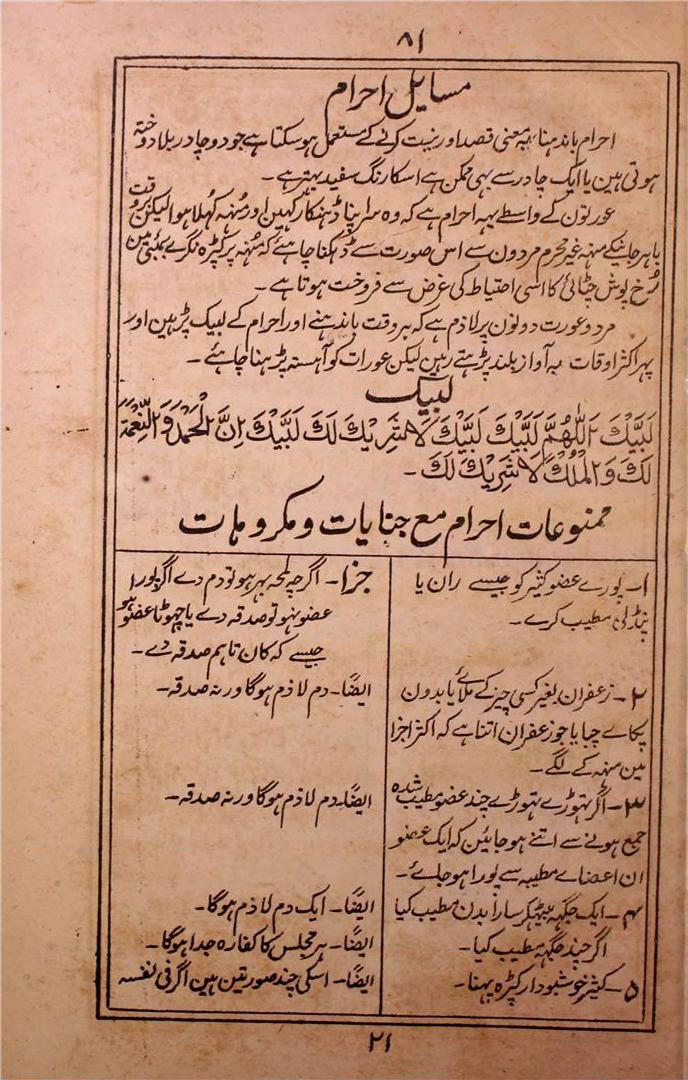 ۸۱
مسایل احرام
احرام باندہنا، بہ معنی قصد اور نیت کرنے کے مستعمل ہو سکتا ہے جو دو چادر بلا دوختہ
ہوتی ہین یا ایک چادر سے بہی ممکن ہے اسکا رنگ سفید بہتر ہے۔
عورتون کے واسطے یہہ احرام ہے کہ وہ سر اپنا ڈہنکا رکہین اور مُنہہ کُہلا ہوا لیکن بروقت
باہر جانیکے منہہ غیر محرم مردون سے اس صورت سے ڈہکنا چاہئے کہ مُنہہ پر کپڑہ نگرے بمبئی مین
رُخ پوش چٹائی کا اسی احتیاط کی غرض سے فروخت ہوتا ہے۔
مرد و عورت دونون پر لازم ہے کہ بر وقت باندہنے اور احرام کے لبیک پڑہین اور
پہر اکثر اوقات بہ آواز بلند پڑہتے رہین لیکن عورات کو آہستہ پڑہنا چاہئے۔
لبیک
لَبَّيْكَ اَللّٰهُمَّ لَبَّيْكَ لَبَّيْكَ لَا شَرِيْكَ لَكَ لَبَّيْكَ اِنَّ الْحَمْدَ وَ النِّعْمَةَ
لَكَ وَ الْمُلْكَ لَا شَرِيْكَ لَكَ۔
ممنوعات احرام مع جنایات و مکروہات
۱۔ پورے عضو کثیر کو جیسے ران یا
پنڈلی مطیب کرے۔
جزا۔ اگرچہ لمحہ بہر ہو تو دم دے اگر پورا
عضو نہو تو صدقہ دے یا چہوٹا عضو ہو
جیسے کہ کان تاہم صدقہ دے۔
۲۔ زعفران بغیر کسی چیز کے ملائے یا بدون
پکاے چبایا جو زعفران اتنا ہے کہ اکثر اجزا
مین منہہ کے لگے۔
ایضًا۔ دم لازم ہوگا ورنہ صدقہ۔
۳۔ اگر تہوڑے تہوڑے چند عضو مطیب شدہ
جمع ہونے سے اتنے ہو جائین کہ ایک عضو
ان اعضاے مطیبہ سے پورا ہو جاے۔
ایضًا۔ دم لازم ہوگا ورنہ صدقہ۔
۴۔ ایک جگہہ بیٹہکر سارا بدن مطیب کیا
ایضًا۔ ایک دم لازم ہوگا۔
اگر چند جگہہ مطیب کیا۔
ایضًا۔ ہر مجلس کا کفارہ جدا ہوگا۔
۵۔ کثیر خوشبودار کپڑہ پہنا۔
ایضًا۔ اسکی چند صورتین ہین اگر فی نفسہ
۲۱